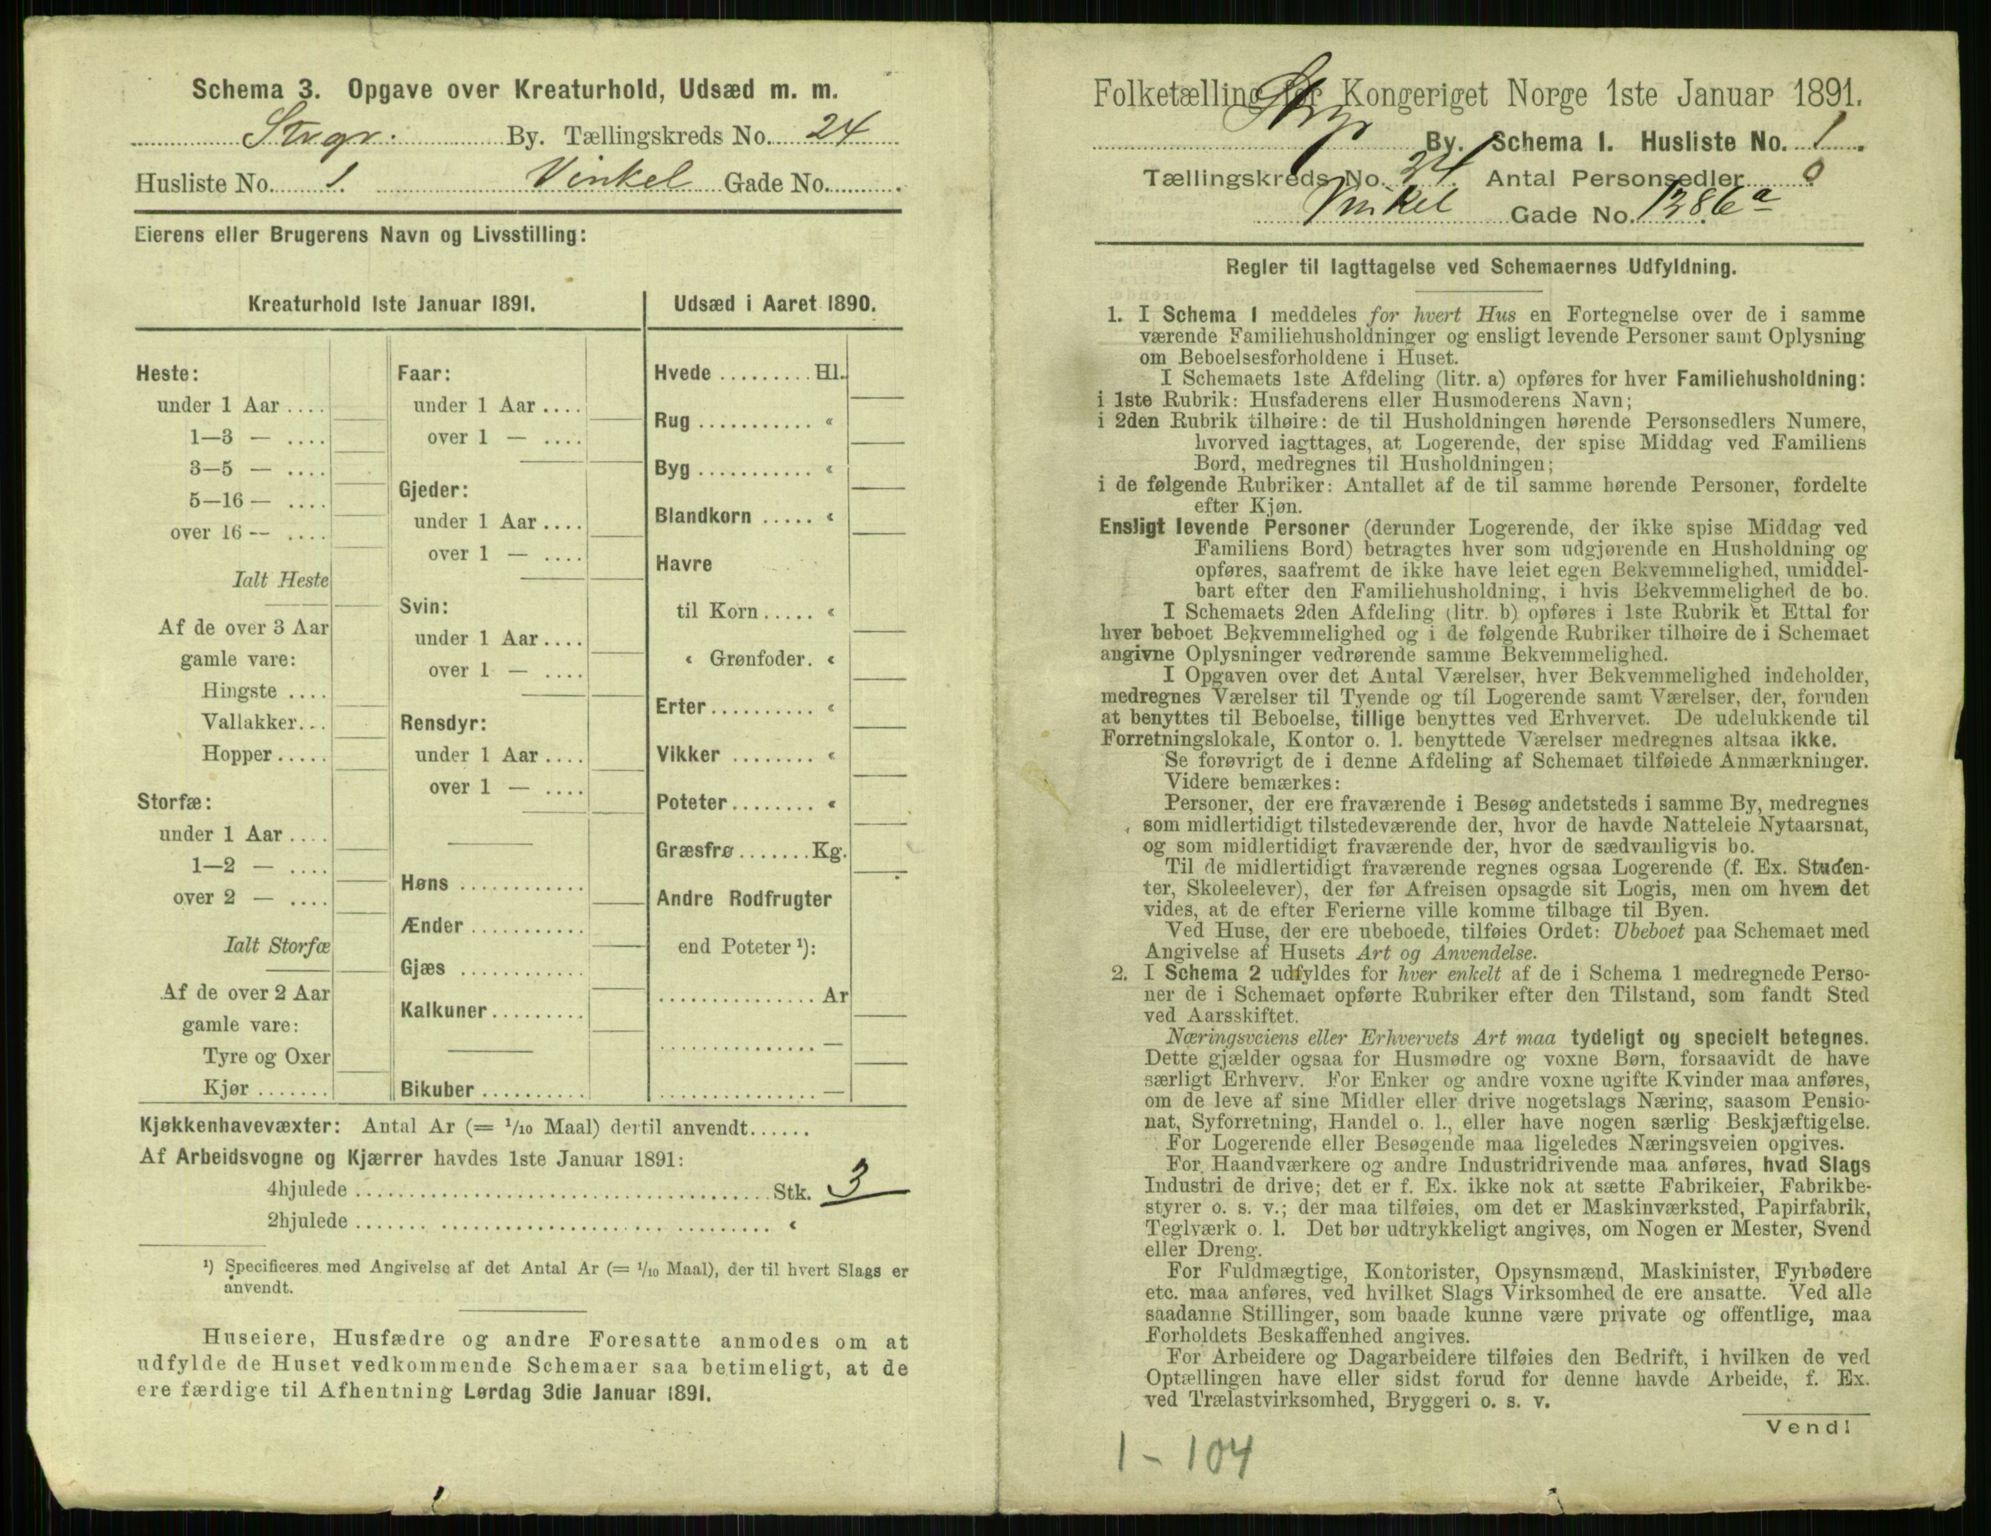 Schema 3. Opgave over Kreaturhold, Udsæd m. m.
Stvgr. By. Tællingskreds No. 24
Husliste No. 1. Vinkel Gade No.
Eierens eller Brugerens Navn og Livsstilling:
Kreaturhold 1ste Januar 1891.
Heste:
under 1 Aar ....
1—3 — ....
3—5 — ....
5—16 — ....
over 16 -- ....
Ialt Heste
Af de over 3 Aar
gamle vare:
Hingste ....
Vallakker...
Hopper.....
Storfæ:
under 1 Aar ....
1—2 — ....
over 2 — ....
Ialt Storfæ
Af de over 2 Aar
gamle vare:
Tyre og Oxer
Kjør .......
Faar:
under 1 Aar ....
over 1 — ....
Gjeder:
under 1 Aar ....
over 1 — ....
Svin:
under 1 Aar ....
over 1 — ....
Rensdyr:
under 1 Aar ....
over 1 — ....
Høns ............
Ænder ...........
Gjæs ............
Kalkuner.........
Bikuber ..........
Udsæd i Aaret 1890.
Hvede ......... Hl.
Rug ........... «
Byg ........... «
Blandkorn ..... «
Havre
til Korn ..... «
« Grønfoder. «
Erter.......... «
Vikker ........ «
Poteter........ «
Græsfrø.......Kg.
Andre Rodfrugter
end Poteter ¹):
............... Ar
............... —
............... —
Kjøkkenhavevæxter: Antal Ar (= ¹/10 Maal) dertil anvendt......
Af Arbeidsvogne og Kjærrer havdes 1ste Januar 1891:
4hjulede ..................................... Stk. 3
2hjulede ..................................... «
¹) Specificeres med Angivelse af det Antal Ar (= ¹/10 Maal), der til hvert Slags er
anvendt.
Huseiere, Husfædre og andre Foresatte anmodes om at
udfylde de Huset vedkommende Schemaer saa betimeligt, at de
ere færdige til Afhentning Lørdag 3die Januar 1891.
Folketælling for Kongeriget Norge 1ste Januar 1891.
By. Schema 1. Husliste No. 1.
Tællingskreds No. 24. Antal Personsedler 0
Vinkel Gade No. 1386a
Regler til Iagttagelse ved Schemaernes Udfyldning.
1. I Schema 1 meddeles for hvert Hus en Fortegnelse over de i samme
værende Familiehusholdninger og ensligt levende Personer samt Oplysning
om Beboelsesforholdene i Huset.
I Schemaets 1ste Afdeling (litr. a) opføres for hver Familiehusholdning:
i 1ste Rubrik: Husfaderens eller Husmoderens Navn;
i 2den Rubrik tilhøire: de til Husholdningen hørende Personsedlers Numere,
hvorved iagttages, at Logerende, der spise Middag ved Familiens
Bord, medregnes til Husholdningen;
i de følgende Rubriker: Antallet af de til samme hørende Personer, fordelte
efter Kjøn.
Ensligt levende Personer (derunder Logerende, der ikke spise Middag ved
Familiens Bord) betragtes hver som udgjørende en Husholdning og
opføres, saafremt de ikke have leiet egen Bekvemmelighed, umiddel-
bart efter den Familiehusholdning, i hvis Bekvemmelighed de bo.
I Schemaets 2den Afdeling (litr. b) opføres i 1ste Rubrik et Ettal for
hver beboet Bekvemmelighed og i de følgende Rubriker tilhøire de i Schemaet
angivne Oplysninger vedrørende samme Bekvemmelighed.
I Opgaven over det Antal Værelser, hver Bekvemmelighed indeholder,
medregnes Værelser til Tyende og til Logerende samt Værelser, der, foruden
at benyttes til Beboelse, tillige benyttes ved Erhvervet. De udelukkende til
Forretningslokale, Kontor o. l. benyttede Værelser medregnes altsaa ikke.
Se forøvrigt de i denne Afdeling af Schemaet tilføiede Anmærkninger.
Videre bemærkes:
Personer, der ere fraværende i Besøg andetsteds i samme By, medregnes
som midlertidigt tilstedeværende der, hvor de havde Natteleie Nytaarsnat,
og som midlertidigt fraværende der, hvor de sædvanligvis bo.
Til de midlertidigt fraværende regnes ogsaa Logerende (f. Ex. Studen-
ter, Skoleelever), der før Afreisen opsagde sit Logis, men om hvem det
vides, at de efter Ferierne ville komme tilbage til Byen.
Ved Huse, der ere ubeboede, tilføies Ordet: Ubeboet paa Schemaet med
Angivelse af Husets Art og Anvendelse.
2. I Schema 2 udfyldes for hver enkelt af de i Schema 1 medregnede Perso-
ner de i Schemaet opførte Rubriker efter den Tilstand, som fandt Sted
ved Aarsskiftet.
Næringsveiens eller Erhvervets Art maa tydeligt og specielt betegnes.
Dette gjælder ogsaa for Husmødre og voxne Børn, forsaavidt de have
særligt Erhverv. For Enker og andre voxne ugifte Kvinder maa anføres,
om de leve af sine Midler eller drive nogetslags Næring, saasom Pensio-
nat, Syforretning, Handel o. l., eller have nogen særlig Beskjæftigelse.
For Logerende eller Besøgende maa ligeledes Næringsveien opgives.
For Haandværkere og andre Industridrivende maa anføres, hvad Slags
Industri de drive; det er f. Ex. ikke nok at sætte Fabrikeier, Fabrikbe-
styrer o. s. v.; der maa tilføies, om det er Maskinværksted, Papirfabrik,
Teglværk o. l. Det bør udtrykkeligt angives, om Nogen er Mester, Svend
eller Dreng.
For Fuldmægtige, Kontorister, Opsynsmænd, Maskinister, Fyrbødere
etc. maa anføres, ved hvilket Slags Virksomhed de ere ansatte. Ved alle
saadanne Stillinger, som baade kunne være private og offentlige, maa
Forholdets Beskaffenhed angives.
For Arbeidere og Dagarbeidere tilføies den Bedrift, i hvilken de ved
Optællingen have eller sidst forud for denne havde Arbeide, f. Ex.
ved Trælastvirksomhed, Bryggeri o. s. v.
Vend!
1 - 104